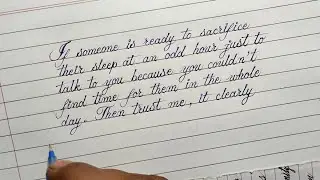 If someone is ready to sacrifice
their sleep at an odd hour just to
talk to you because you couldn't
find time for them in the whole
day. Then trust me, it clearly